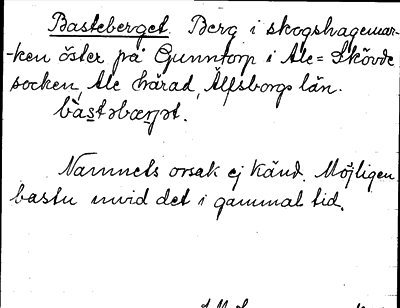 Basteberget. Berg i skogshagemar-
-ken öster på Gunntorp i Ale=Skövde
socken, Ale härad, Älfsborgs län.
bàstəbærjət.
Namnets orsak ej känd. Möjligen
bastu invid det i gammal tid.